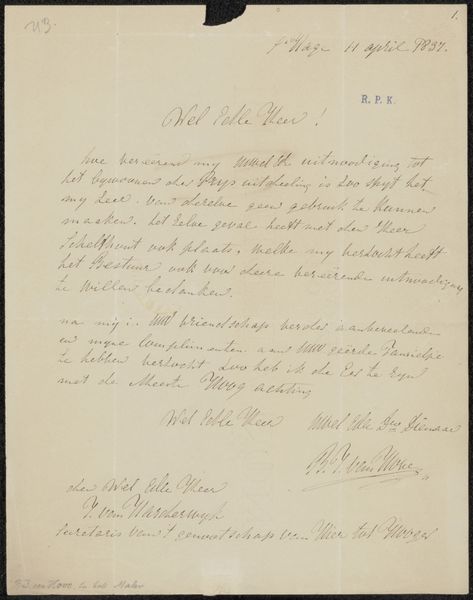 1.
s'Hage 11 april 1837.
R. P. K.
Wel Edle Heer!
hoe vereerend my uwelEd uitnoodiging tot
het bywoonen der Prys uitdeeling is Zoo spyt het
my Zeer van dezelve geen gebruik te kunnen
maaken. het Zelve geval heeft met den Heer
Schelfhout ook plaats, welke my verzocht heeft
het Bestuur ook voor deeze vereerende uitnoodiging
te willen bedanken.
na mij in uw vriendschap verder aanbevelende
en myne complimenten aan uw geerde Familie
te hebben verzocht Zoo heb ik de Eer te Zyn
met de Meeste Hoog achting
Wel Edle Heer uwel Edle Dw Dienaar
B. J. van Hove
den Wel Edle Heer
J. van Harderwyk
Secretaris van 't genootschap van Hier tot Hooger